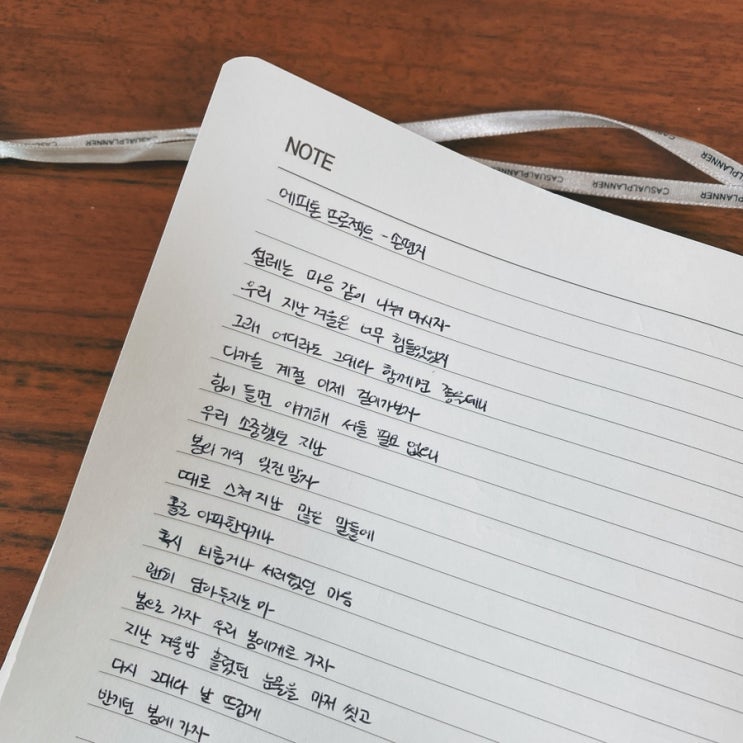 CASUALPLANNER CASUALPLANNER CASUALPLANNER CASUALPLANNER
CASUALPLANNER CASUALPLANNER
NOTE
에피톤 프로젝트 - 손편지
설레는 마음 같이 나눠 마시자
우리 지난 겨울은 너무 힘들었었지
그래 어디라도 그대와 함께면 좋을테니
다가올 계절 이제 걸어가보자
힘이 들면 얘기해 서둘 필요 없으니
우리 소중했던 지난
봄의 기억 잊진 말자
때로 스쳐 지난 많은 말들에
홀로 아파한다거나
혹시 티룸거나 서러웠던 마음
괜히 담아두지는 마
봄으로 가자 우리 봄에게로 가자
지난 겨울밤 흘렸던 눈물을 마저 씻고
다시 그대와 날 뜨겁게
반기던 봄에 가자